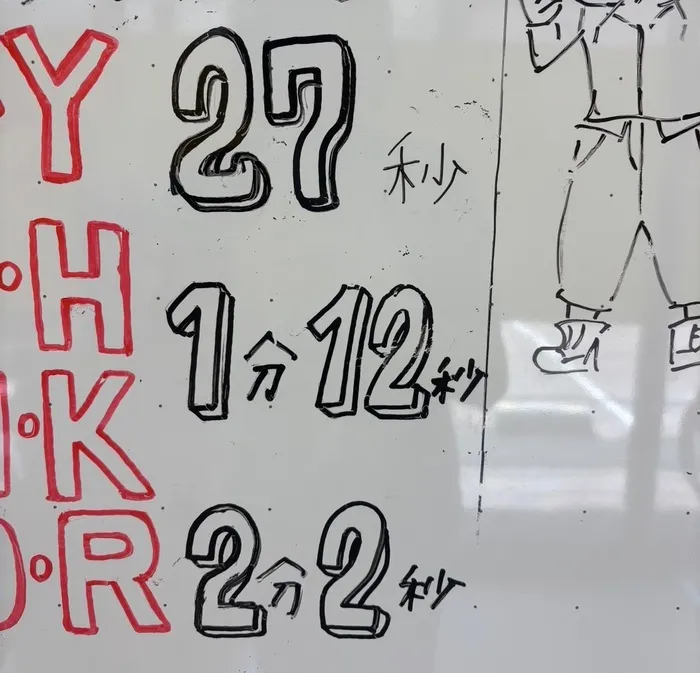 Y 27秒
・H 1分12秒
・K
・R 2分2秒